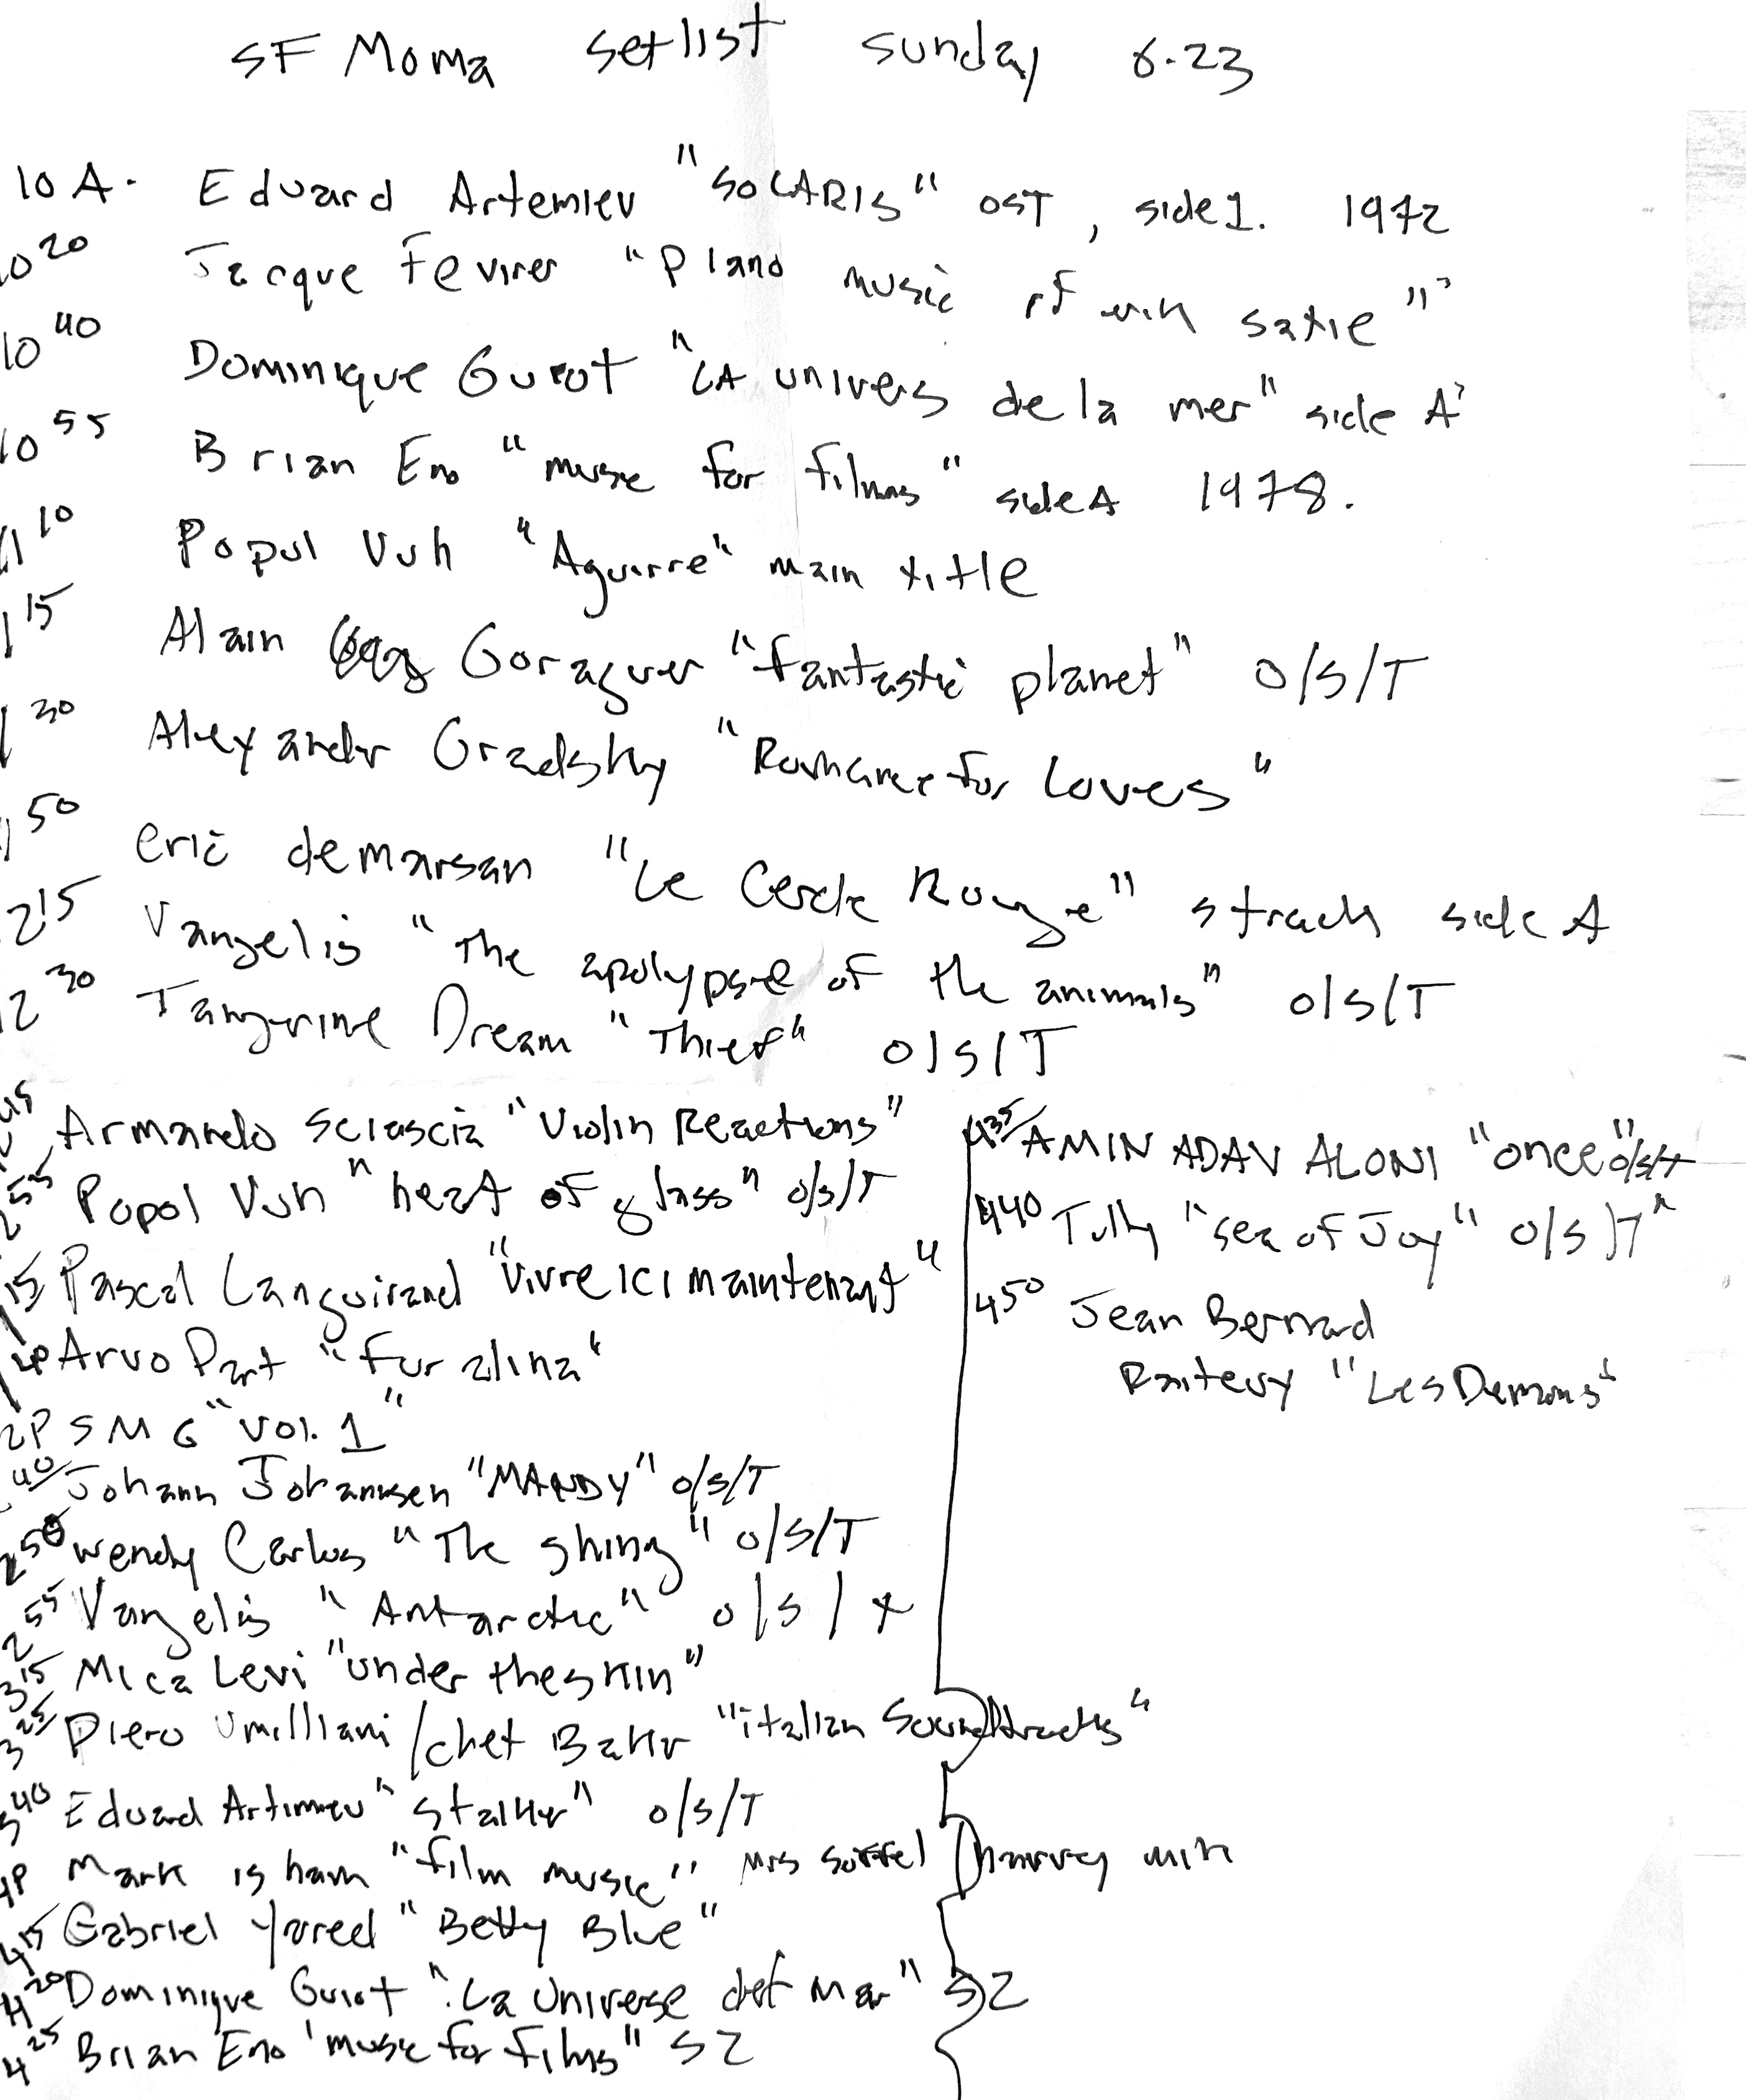 SF Moma setlist sunday 6.23
10 A. Eduard Artemiev "SOLARIS" OST, side 1. 1972
1020 Jacque Fevirer "Piano music of erik satie"
10 40 Dominique Guiot "LA univers de la mer" side A
10 55 Brian Eno "music for films" side A 1978.
11 10 Popul Vuh "Aguirre" main title
15 Alain Goraguer "fantastic planet" O/S/T
30 Alexander Gradsky "Romance for Lovers"
50 Eric demarsan "Le Cercle Rouge" strack side A
215 Vangelis "The apolypse of the animals" O/S/T
2 30 Tangerine Dream "Thief" O/S/T
45 Armando Sciascia "Violin Reactions"
55 Popol Vuh "heart of glass" o/s/T
15 Pascal Languirand "Vivre ici maintenant"
Arvo Part "fur alina"
2P SMG "vol. 1"
40 Johann Johannsen "MANDY" o/s/T
250 Wendy Carlos "The shing" o/s/T
255 Vangelis "Antarctic" o/s/t
315 Mica Levi "under the skin"
325 Piero Umilliani / chet Baker "italian Soundtracks"
340 Eduard Artimiev "Stalker" o/s/T
4P Mark isham "film music" Mrs soffel harvey milk
415 Gabriel Yared "Betty Blue"
420 Dominique Guiot "La Universe def Mar" S2
425 Brian Eno 'music for films" S2
435 AMIN ADAV ALONI "once" o/s/t
440 Tully "sea of Joy" o/s/T
450 Jean Bernard
Raiteux "Les Demons"